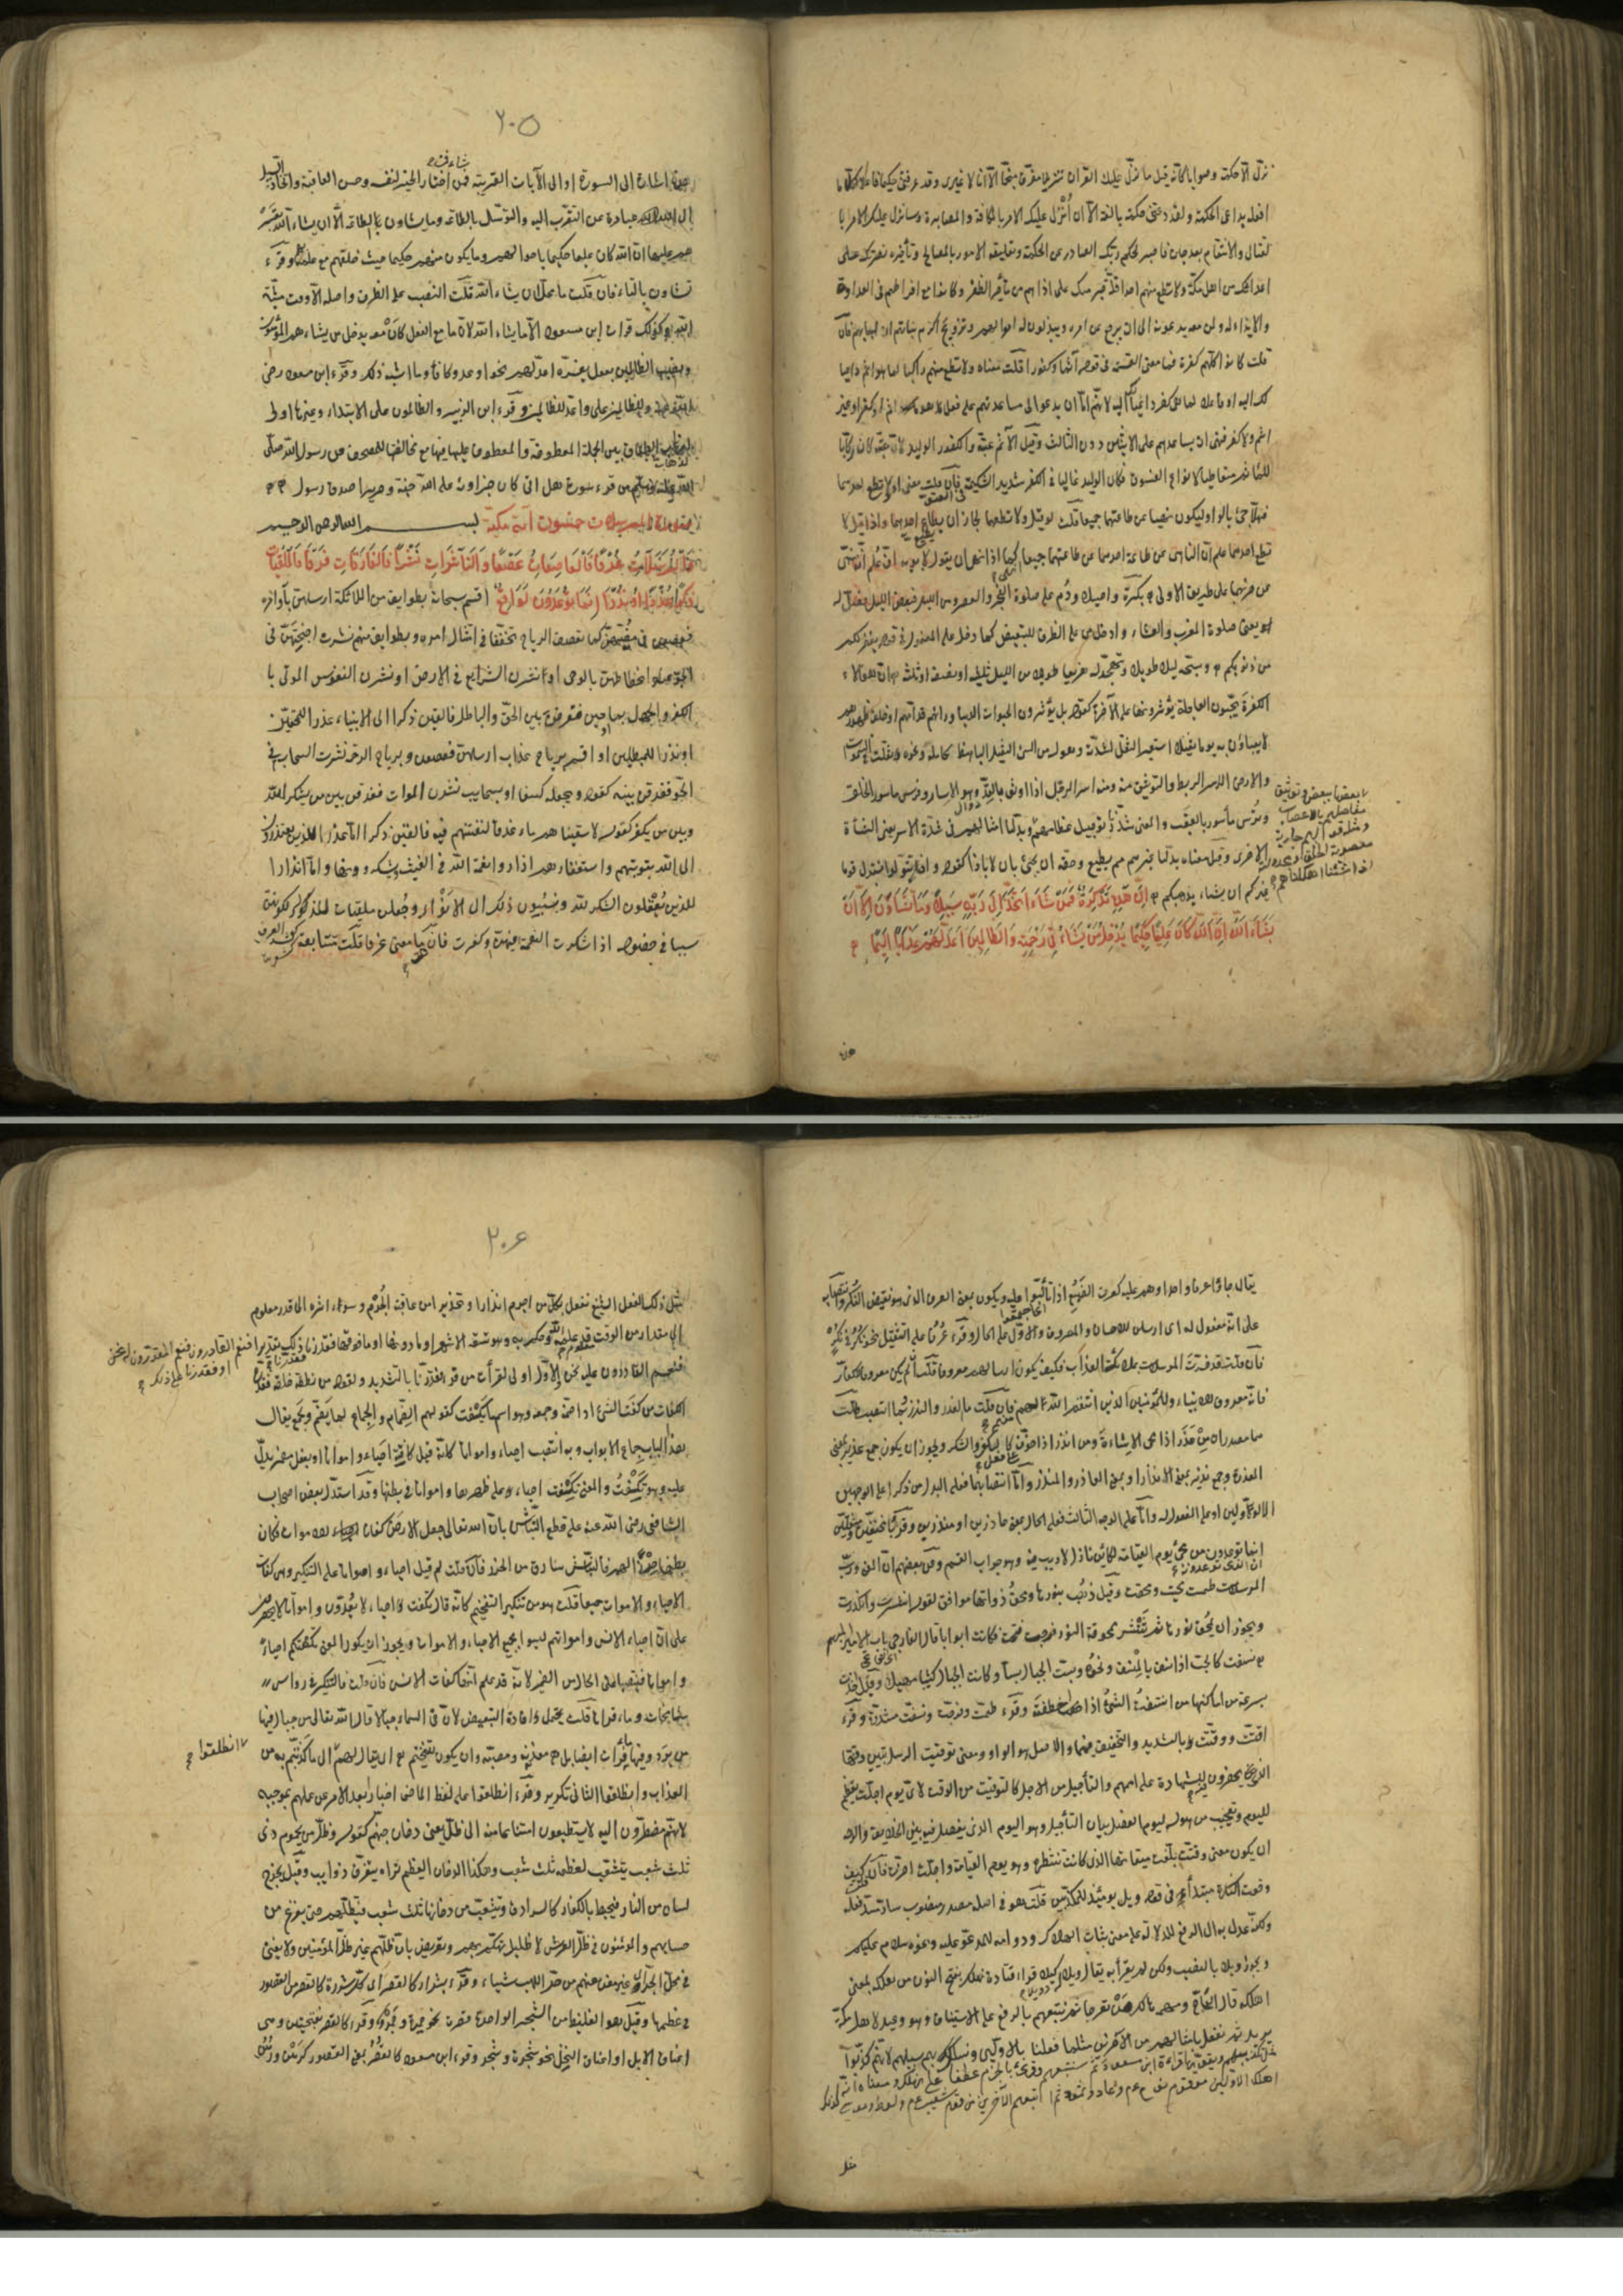 نزل الا حكمة وصوابا كانه قيل ما نزل عليك القران تنزيلا مفرقا منجما الا انا لا غيرى وقد عرفتنى حكيما فاعلا لكل ما
افعل بدواعى الحكمة ولقد دعتنى حكمة بالغة الا ان أنزل عليك الامر بالمكافة والمصابرة وسانزل عليك الامر با
لقتال والانتقام بعد حين فاصبر لحكم ربك الصادر عن الحكمة وتعليقه الامور بالمصالح وتأخيره نصرتك على
اعدائك من اهل مكة ولا تطع منهم احدا قلة صبر منك على اذاهم من تأخر الظفر وكانوا مع افراطهم فى العداوة
والايذاء له ولمن معه يدعونه الى ان يرجع عن امره ويبذلون له اموالهم وتزويج اكرم بناتهم ان اجابهم فان
قلت كانوا كلهم كفرة فما معنى القسمة فى قوله آثما او كفورا قلت معناه ولا تطع منهم راكبا لما هو اثم داعيا
لك اليه او فاعلا لما هو كفر داعيا لك اليه لانهم اما ان يدعوه الى مساعدتهم على فعل هو اثم او كفر او غير
اثم ولا كفر فنهى ان يساعدهم على الاثنين دون الثالث وقيل الآثم عتبة والكفور الوليد لان عتبة كان ركابا
للمآثم متعاطيا لانواع الفسوق وكان الوليد غاليا فى الكفر شديد الشكيمة فى العتو فان قلت معنى او لا تطع احدهما
فهلا جئ بالواو ليكون نهيا عن طاعتهما جميعا قلت لو قيل ولا تطعهما لجاز ان يطيع احدهما واذا قيل لا
تطع احدهما علم ان الناهى عن طاعة احدهما عن طاعتهما جميعا انهى كما اذا نهى ان يقول لابويه اف علم انه نهى
عن ضربهما على طريق الاولى بكرة واصيلا ودم على صلوة الفجر والعصر ومن الليل فبعض الليل فصل له
او يعنى صلوة المغرب والعشاء وادخل من على الظرف للتبعيض كما دخل على المفعول فى قوله يغفر لكم
من ذنوبكم وسبحه ليلا طويلا وتهجد له هزيعا طويلا من الليل ثلثيه او نصفه او ثلثه ان هؤلاء
الكفرة يحبون العاجلة يؤثرونها على الآخرة كقوله بل يؤثرون الحيوة الدنيا وراءهم قدامهم او خلف ظهورهم
لا يعباؤن به يوما ثقيلا استعير الثقل لشدته وهوله من الشئ الثقيل الباهظ لحامله ونحوه ثقلت فى السموات
والارض الاسر الربط والتوثيق منه ومنه اسر الرجل اذا اوثق بالقد وهو الاسار وفرس ماسور الخلق
وترس مأسور بالعقب والمعنى شددنا توصيل عظامهم وبدلنا امثالهم فى شدة الاسر يعنى النشأة
الاخرى وقيل معناه بدلنا غيرهم ممن يطيع وحقه ان يجئ بان لا باذا كقوله وان تتولوا يستبدل قوما
غيركم ان يشاء يذهبكم إن هذه تذكرة فمن شاء اتخذ إلى ربه سبيلا وما تشاؤن إلا أن
يشاء الله إن الله كان عليما حكيما يدخل من يشاء فى رحمته والظالمين اعد لهم عذابا اليما
بعضها ببعض وتوثيق
مفاصلهم بالاعصاب
اذا شئنا اهلكناهم
هذه
٢٠٥
هذه اشارة الى السورة او الى الآيات القريبة فمن شاء فمن اختار الخير لنفسه وحسن العاقبة واتخاذ السبيل
الى الله عبارة عن التقرب اليه والتوسل بالطاعة وما يشاؤن الطاعة الا ان يشاء الله بقسرهم
عليها ان الله كان عليما حكيما باحوالهم وما يكون منهم حكيما حيث خلقهم مع علمه وقرء
تشاؤن بالتاء فان قلت ما محل ان يشاء الله قلت النصب على الظرف واصله الا وقت مشية
الله وكذلك قراءة ابن مسعود الا ما يشاء الله لان ما مع الفعل كان معه يدخل من يشاء هم المؤمنون
ونصب الظالمين بفعل يفسره اعد لهم نحو اوعد وكافأ وما اشبه ذلك وقرء ابن مسعود رضى
الله عنه وللظالمين على واعد للظالمين وقرء ابن الزبير والظالمون على الابتداء وغيرها اولى
لذهاب الطباق بين الجملة المعطوفة والمعطوف عليها فيها مع مخالفتها للمصحف عن رسول الله صلى
الله عليه وسلم من قرء سورة هل اتى كان جزاؤه على الله جنة وحريرا صدق رسول
سورة المرسلات خمسون آية مكية بسم الله الرحمن الرحيم
والمرسلات عرفا فالعاصفات عصفا والناشرات نشرا فالفارقات فرقا فالملقيات
ذكرا عذرا او نذرا انما توعدون لواقع اقسم سبحانه بطوايف من الملائكة ارسلهن باوامره
فعصفن فى مضيهن كما تعصف الرياح تخففا فى امتثال امره وبطوايف منهم نشرن اجنحتهن فى
الجو عند انحطاطهن بالوحى او نشرن الشرايع فى الارض او نشرن النفوس الموتى با
لكفر والجهل بما اوحين ففرقن بين الحق والباطل فالقين ذكرا الى الانبياء عذرا للمحقين
او نذرا للمبطلين او اقسم برياح عذاب ارسلهن فعصفن وبرياح الرحمة نشرن السحاب فى
الجو ففرقن بينه كقوله ويجعله كسفا او بسحايب نشرن الموات ففرقن بين من يشكر لله
وبين من يكفر كقوله لاسقيناهم ماء غدقا لنفتنهم فيه فالقين ذكرا اما عذرا للذين يعتذرون
الى الله بتوبتهم واستغفارهم اذا راوا نعمة الله فى الغيث ويشكرونها واما انذارا
للذين يغفلون الشكر لله وينسبون ذلك الى الانواء وجعلن ملقيات للذكر لكونهن
سببا فى حصوله اذا شكرت النعمة فيهن او كفرت فان قلت ما معنى عرفا قلت متتابعة كعرف
٢٠٦
يقال جاؤا عرفا واحدا وهم عليه كعرف الضبع اذا تألبوا عليه ويكون بمعنى العرف الذى هو نقيض النكر وانتصابه
على انه مفعول له اى ارسلن للاحسان والمعروف والاول على الحال وقرء عرفا على التثقيل نحو نكر فى نكر
فان قلت قد فسرت المرسلات بملائكة العذاب فكيف يكون ارسالهم معروفا قلت ان لم يكن معروفا للكفار
فانه معروف للانبياء وللمؤمنين الذين انتقم الله لهم منهم فان قلت ما العذر والنذر وبما انتصبا قلت
هما مصدران من عذر اذا محى الاساءة ومن انذر اذا خوف على فعل كالكفر والشكر ويجوز ان يكون جمع عذير بمعنى
المعذرة وجمع نذير بمعنى الانذار او بمعنى العاذر والمنذر واما انتصابهما فعلى البدل من ذكرا على الوجهين
الاولين او على المفعول له واما على الوجه الثالث فعلى الحال بمعنى عاذرين او منذرين وقرئا مخففين ومثقلين
ان الذى توعدونه من مجئ يوم القيامة لكائن نازل لا ريب فيه وهو جواب القسم وعن بعضهم ان المعنى ورب
المرسلات طمست محيت ومحقت وقيل ذهب بنورها ومحق ذواتها موافق لقوله انتثرت وانكدرت
ويجوز ان يمحق نورها ثم تنتثر ممحوقة النور فرجت فتحت فكانت ابوابا قال الفارجى باب الامير المبهم
نسفت كالحب اذا نسف بالمنسف ونحوه وبست الجبال بسا وكانت الجبال كثيبا مهيلا وقيل اخذت
بسرعة من اماكنها من انتسفت الشئ اذا اختطفته وقرء طمست وفرجت ونسفت مشددة وقرء
اقتت ووقتت بالتشديد والتخفيف فيهما والاصل هو الواو ومعنى توقيت الرسل تبيين وقتها
الذى يحضرون فيه للشهادة على اممهم والتأجيل من الاجل كالتوقيت من الوقت لاى يوم اجلت تعظيم
لليوم وتعجيب من هوله ليوم الفصل بيان التأجيل وهو اليوم الذى يفصل فيه بين الخلايق والاوجه
ان يكون معنى وقتت بلغت ميقاتها الذى كانت تنتظره وهو يوم القيامة واجلت اخرت فان قلت كيف
وقعت النكرة مبتدأ فى قوله ويل يومئذ للمكذبين قلت هو فى اصله مصدر منصوب ساد مسد فعله
ولكنه عدل به الى الرفع للدلالة على معنى ثبات الهلاك ودوامه للمدعو عليه ونحوه سلام عليكم
ويجوز ويلا بالنصب ولكن لم يقرأ به يقال ويلا له ويلا كيلا قراءة قتادة نهلك بفتح النون من هلكه بمعنى
اهلكه قال العجاج ومهمه هالك من تعرجا ثم نتبعهم بالرفع على الاستيناف وهو وعيد لاهل مكة
يريد ثم نفعل بامثالهم من الآخرين مثل ما فعلنا بالاولين ونسلك بهم سبيلهم لانهم كذبوا
مثل تكذيبهم ويقويها قراءة ابن مسعود ثم سنتبعهم وقرئ بالجزم عطفا على نهلك ومعناه انه
اهلك الاولين من قوم نوح وعاد وثمود ثم اتبعهم الآخرين من قوم شعيب ولوط وموسى كذلك
مثل
مثل ذلك الفعل الشنيع نفعل بكل من اجرم انذارا وتحذيرا من عاقبة الجرم وسوء اثره الى قدر معلوم
الى مقدار من الوقت معلوم قد علمه الله وحكم به وهو تسعة الاشهر او ما دونها او ما فوقها فقدرنا ذلك تقديرا فنعم القادرون فنعم المقدرون له نحن
او فقدرنا على ذلك
فنعم القادرون عليه نحن والاول اولى لقراءة من قرء فقدرنا بالتشديد ولقوله من نطفة خلقه فقدره
الكفات من كفت الشئ اذا ضمه وجمعه وهو اسم ما يكفت كقولهم الضمام والجماع لما يضم ويجمع يقال
هذا الباب جماع الابواب وبه انتصب احياء وامواتا كانه قيل كافتة احياء وامواتا او بفعل مضمر يدل
عليه وهو تكفت والمعنى تكفت احياء على ظهرها وامواتا فى بطنها وقد استدل بعض اصحاب
الشافعى رضى الله عنه على قطع النباش بان الله تعالى جعل الارض كفاتا للاموات فكان
بطنها حرزا لهم فالنباش سارق من الحرز فان قلت لم قيل احياء وامواتا على التنكير وهى كفات
الاحياء والاموات جميعا قلت هو من تنكير التفخيم كانه قال تكفت احياء لا يعدون وامواتا لا يحصرون
على ان احياء الانس وامواتهم ليسوا بجميع الاحياء والاموات ويجوز ان يكون المعنى تكفتكم احياء
وامواتا فينتصبا على الحال من الضمير لانه قد علم انها كفات الانس فان قلت فالتنكير فى رواسى
شامخات وماء فراتا قلت يحتمل افادة التبعيض لان فى السماء جبالا قال الله تعالى من جبال فيها
من برد وفيها ماء فرات ايضا بل هى معدنه ومصبه وان يكون للتفخيم اى يقال لهم انطلقوا الى ما كذبتم به من
انطلقوا
العذاب وانطلقوا الثانى تكرير وقرء انطلقوا على لفظ الماضى اخبارا بعد الامر عن عملهم بموجبه
لانهم مضطرون اليه لا يستطيعون امتناعا منه الى ظل يعنى دخان جهنم كقوله وظل من يحموم ذى
ثلث شعب يتشعب لعظمه ثلث شعب وهكذا الدخان العظيم تراه يتفرق ذوايب وقيل يخرج
لسان من النار فيحيط بالكفار كالسرادق ويتشعب من دخانها ثلث شعب فتظلهم حتى يفرغ من
حسابهم والمؤمنون فى ظل العرش لا ظليل تهكم بهم وتعريض بان ظلهم غير ظل المؤمنين ولا يغنى
فى محل الجر اى غير مغن عنهم من حر اللهب شيئا وقرء بشرار كالقصر اى كل شررة كالقصر من القصور
فى عظمها وقيل هو الغليظ من الشجر الواحدة قصرة نحو جمرة وجمر وقرء كالقصر بفتحتين وهى
اعناق الابل او اعناق النخل نحو شجرة وشجر وقرء ابن مسعود كالقصر بمعنى القصور كرهن ورهن